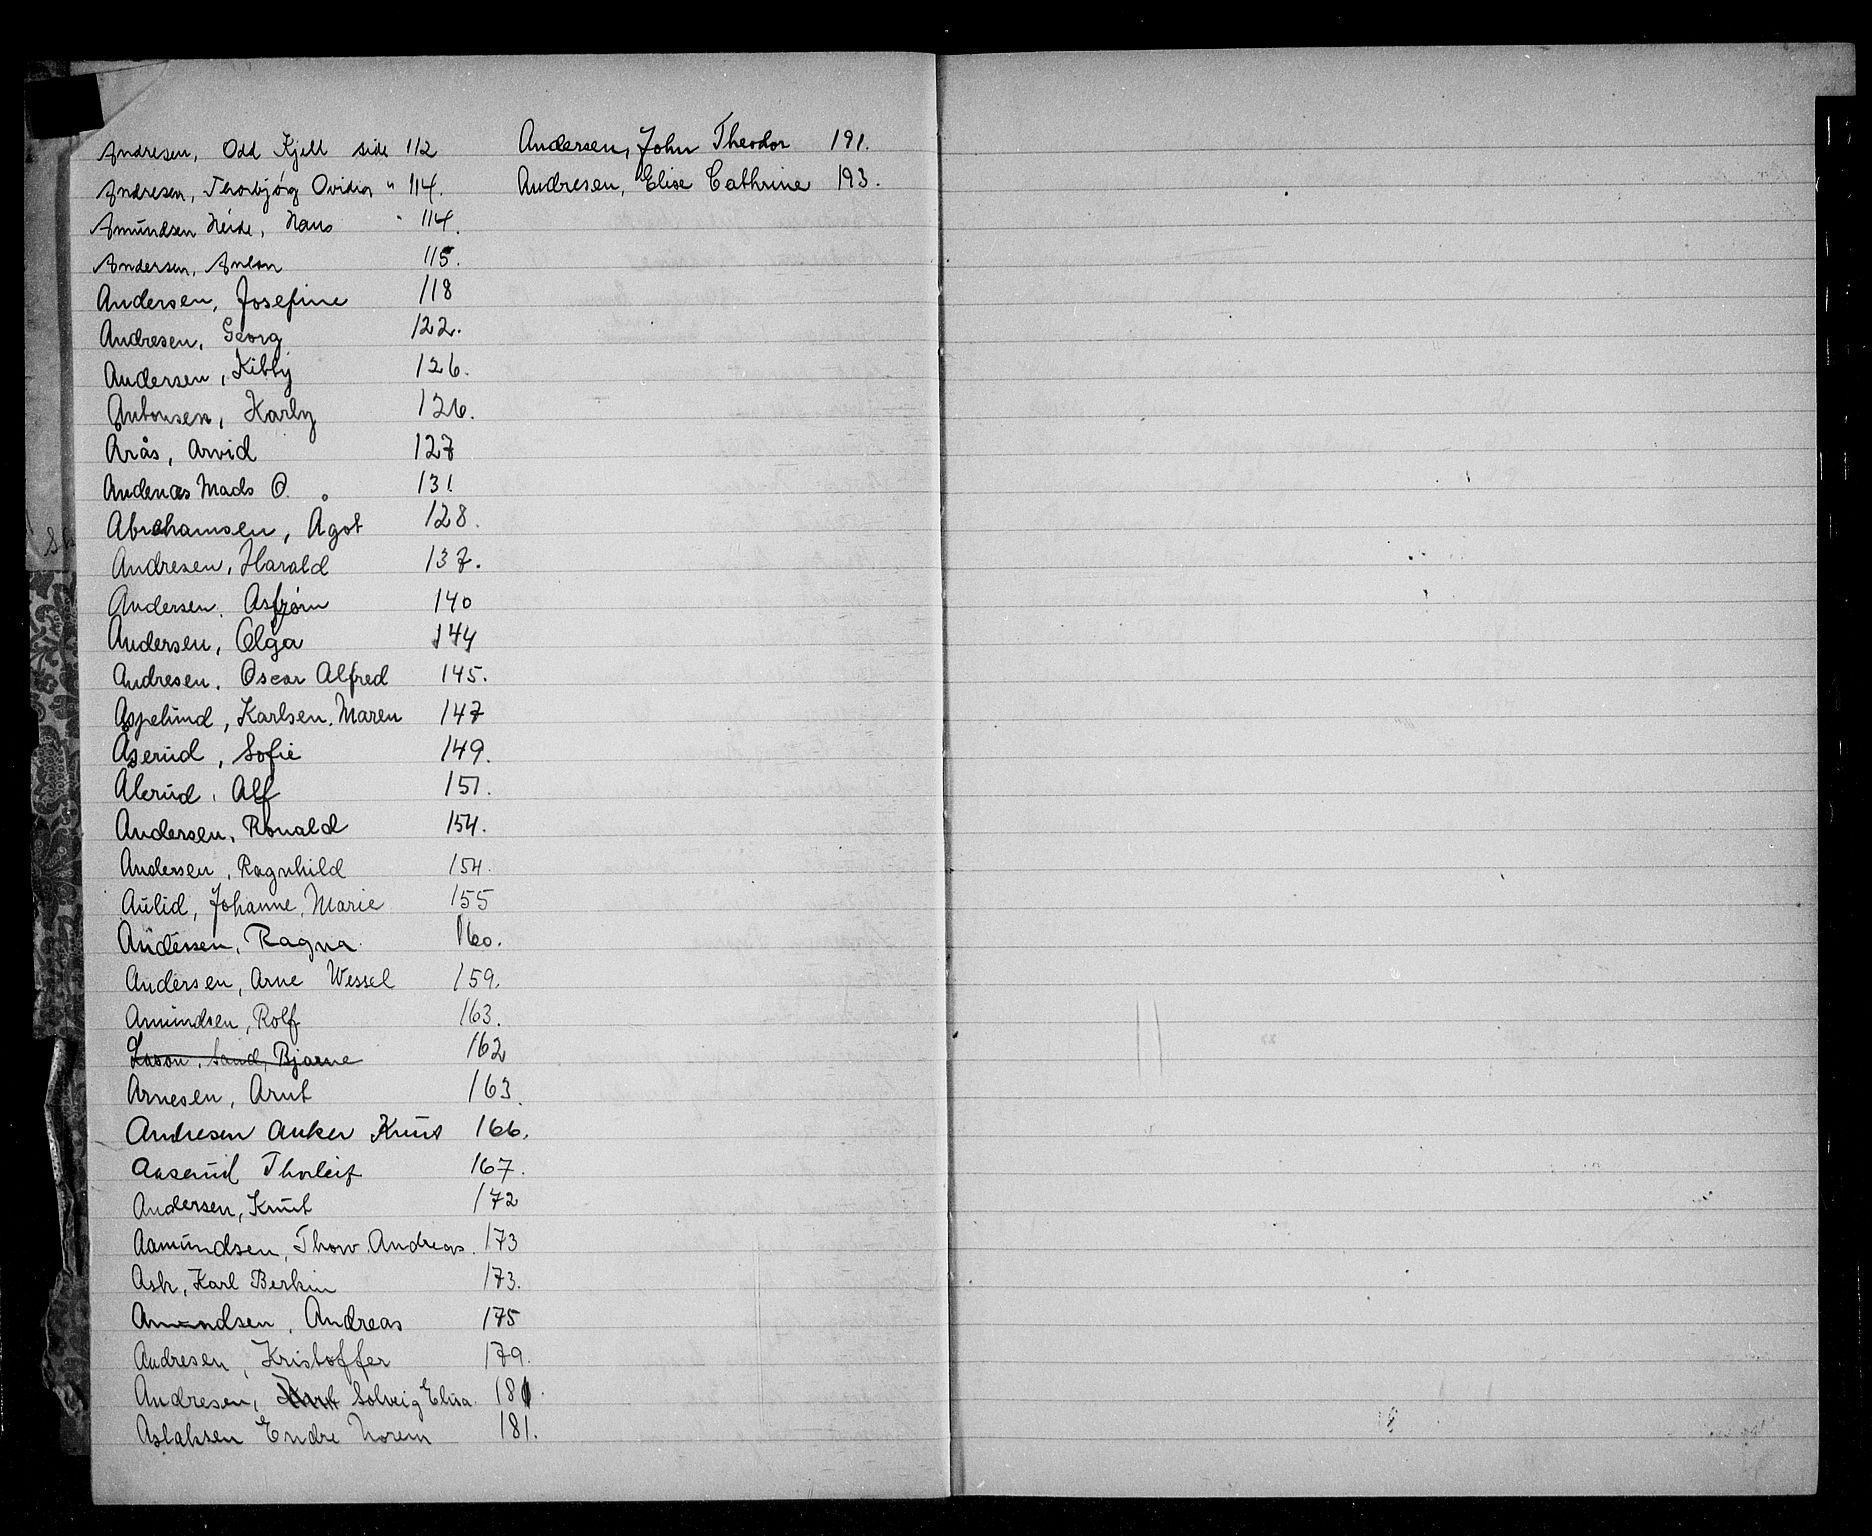 Andresen, Odd Kjell side 112
Andresen, Thorbjørg Ovidia " 114.
Amundsen Heide, Hans " 114.
Andersen, Anton 115.
Andersen, Josefine 118
Andresen, Georg 122.
Andersen, Kibby 126.
Antonsen, Karly 126.
Arås, Arvid 127
Andenæs Mads O. 131
Abrahamsen, Ågot 128.
Andresen, Harald 137.
Andersen, Asbjørn 140
Andersen, Olga 144
Andresen, Oscar Alfred 145.
Aspelund, Karlsen, Maren 147
Åserud, Sofie 149.
Alerud, Alf 151.
Andersen, Ronald 154.
Andersen, Ragnhild 154.
Aulid, Johanne, Marie 155
Andersen, Ragna 160.
Andersen, Arne Wessel 159.
Amundsen, Rolf 163.
Sand, Bjarne 162
Arnesen, Arnt 163.
Andresen Anker Knut 166.
Aaserud Thorleif 167.
Andersen, Knut 172
Aamundsen, Thorv. Andreas. 173
Ask, Karl Berkin 173.
Amundsen, Andreas 175
Andresen, Kristoffer 179.
Andresen, Solveig Elisa 181.
Aslaksen Endre Norem 181.
Andersen, John Theodor 191.
Andresen, Elise Cathrine 193.